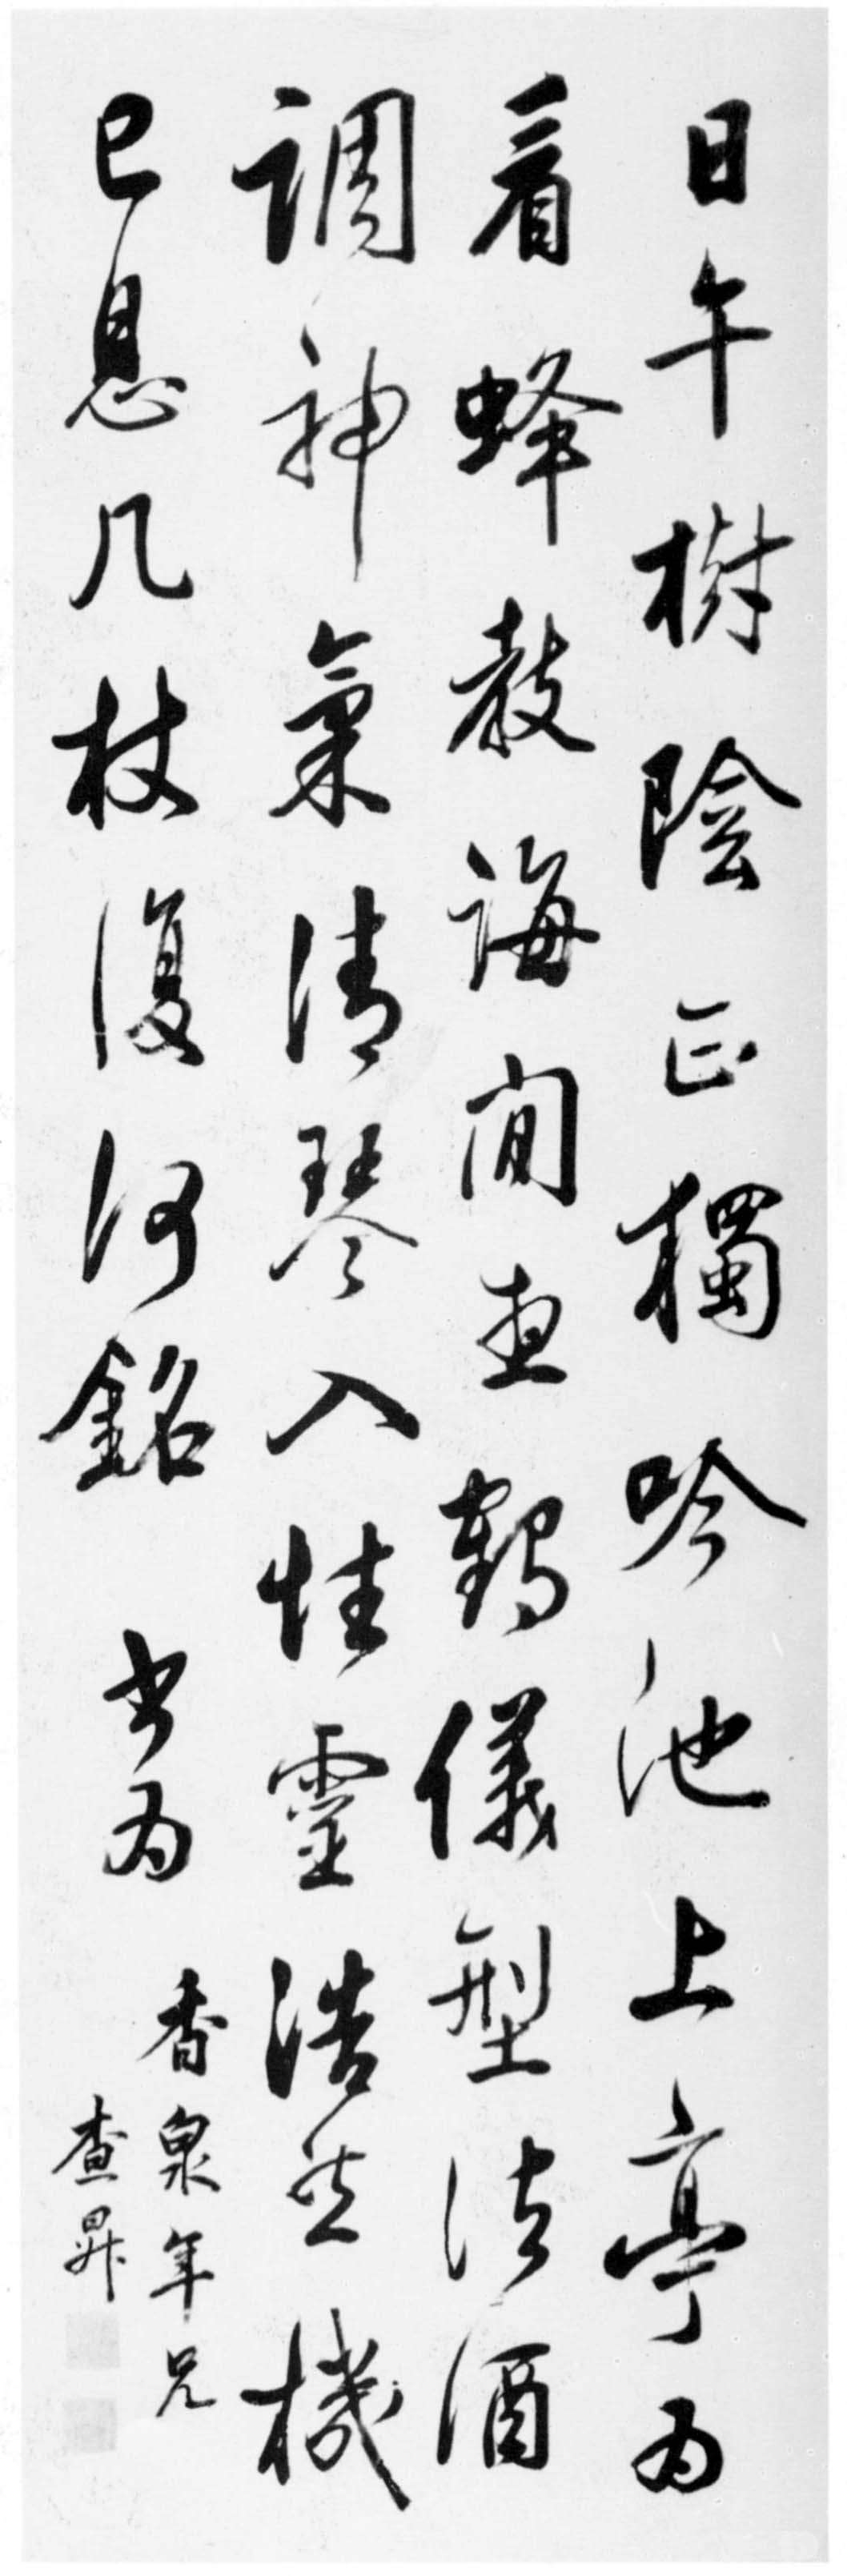 日午樹陰正獨吟池上亭為
看蜂教誨閒查鶴儀型法酒
調神氣清琴入性靈浩然機
已息几杖復何銘 書為
香泉年兄
查昇